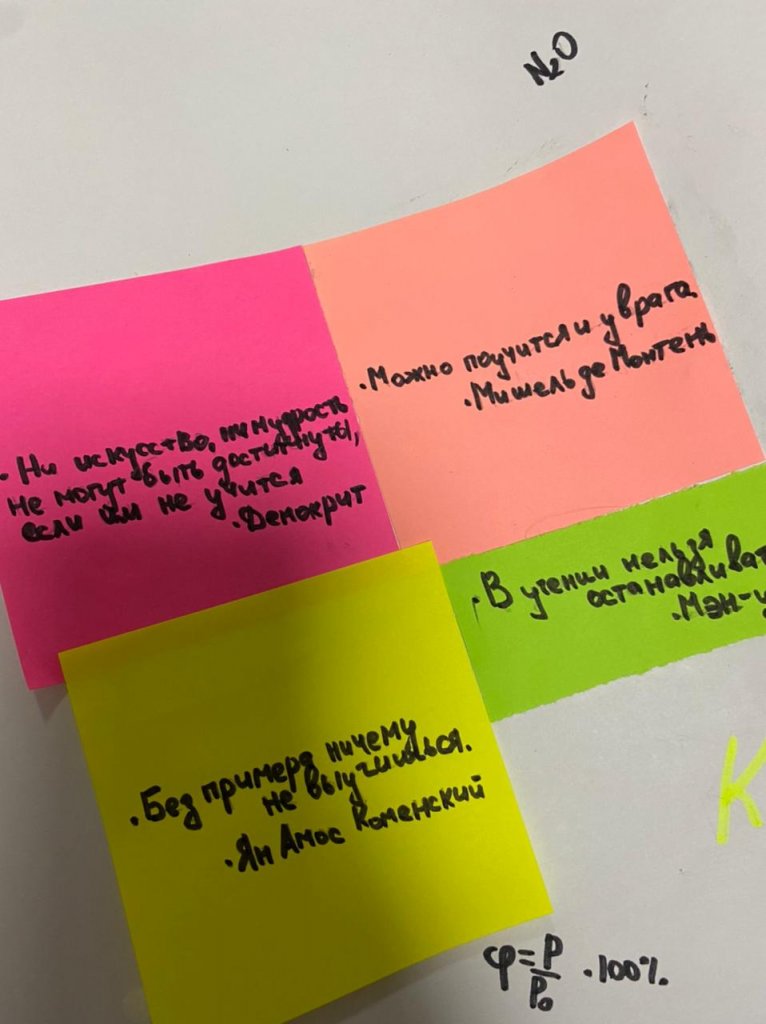 N₂O
. Ни искусство, ни мудрость
не могут быть достигнуты,
если им не учится
. Демокрит
. Можно поучится и у врага.
. Мишель де Монтень
. В учении нельзя
останавливат
. Мэн-ц
. Без примера ничему
не выучишься.
. Ян Амос Коменский
К
φ = P/P₀ · 100%.